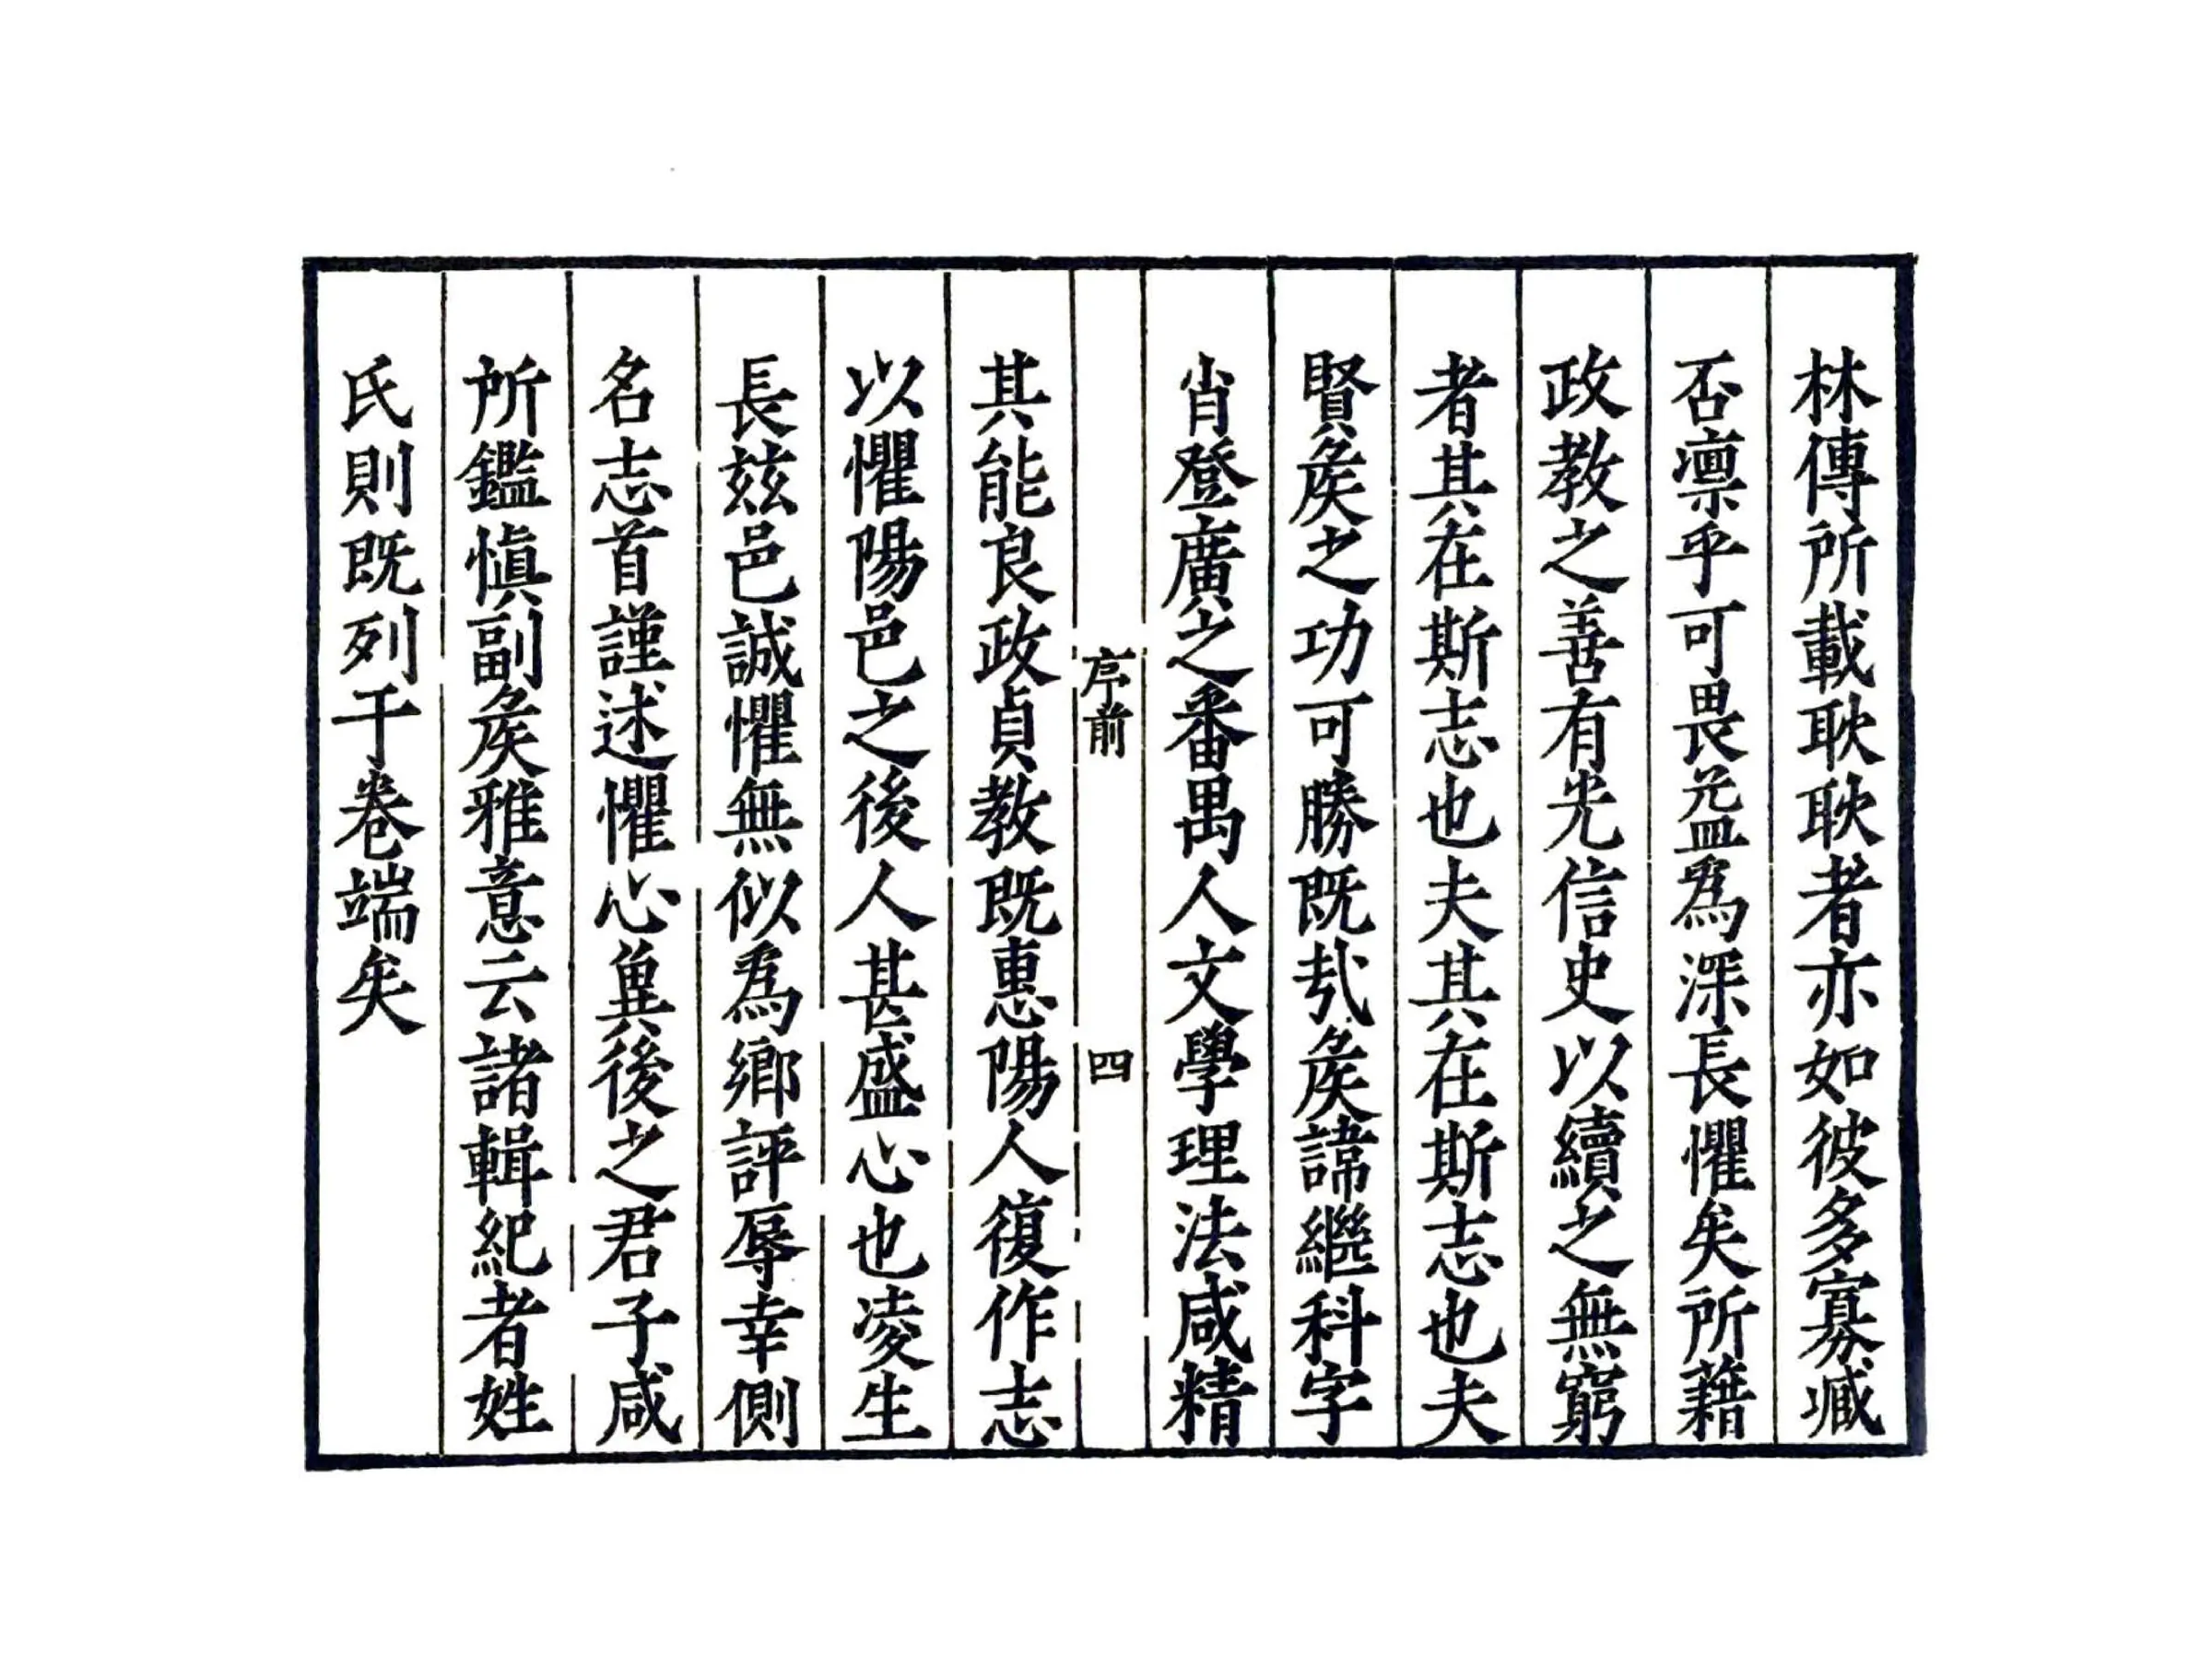 林傳所載耿耿者亦如彼多寡臧
否凛乎可畏益為深長懼矣所藉
政教之善有光信史以續之無窮
者其在斯志也夫其在斯志也夫
賢矦之功可勝既㢤矦諱繼科字
肖登廣之番禺人文學理法咸精
序前 四
其能良政貞教既惠陽人復作志
以懼陽邑之後人甚盛心也凌生
長茲邑誠懼無似為鄉評辱幸側
名志首謹述懼心兾後之君子咸
所鑑慎副矦雅意云諸輯紀者姓
氏則既列于卷端矣